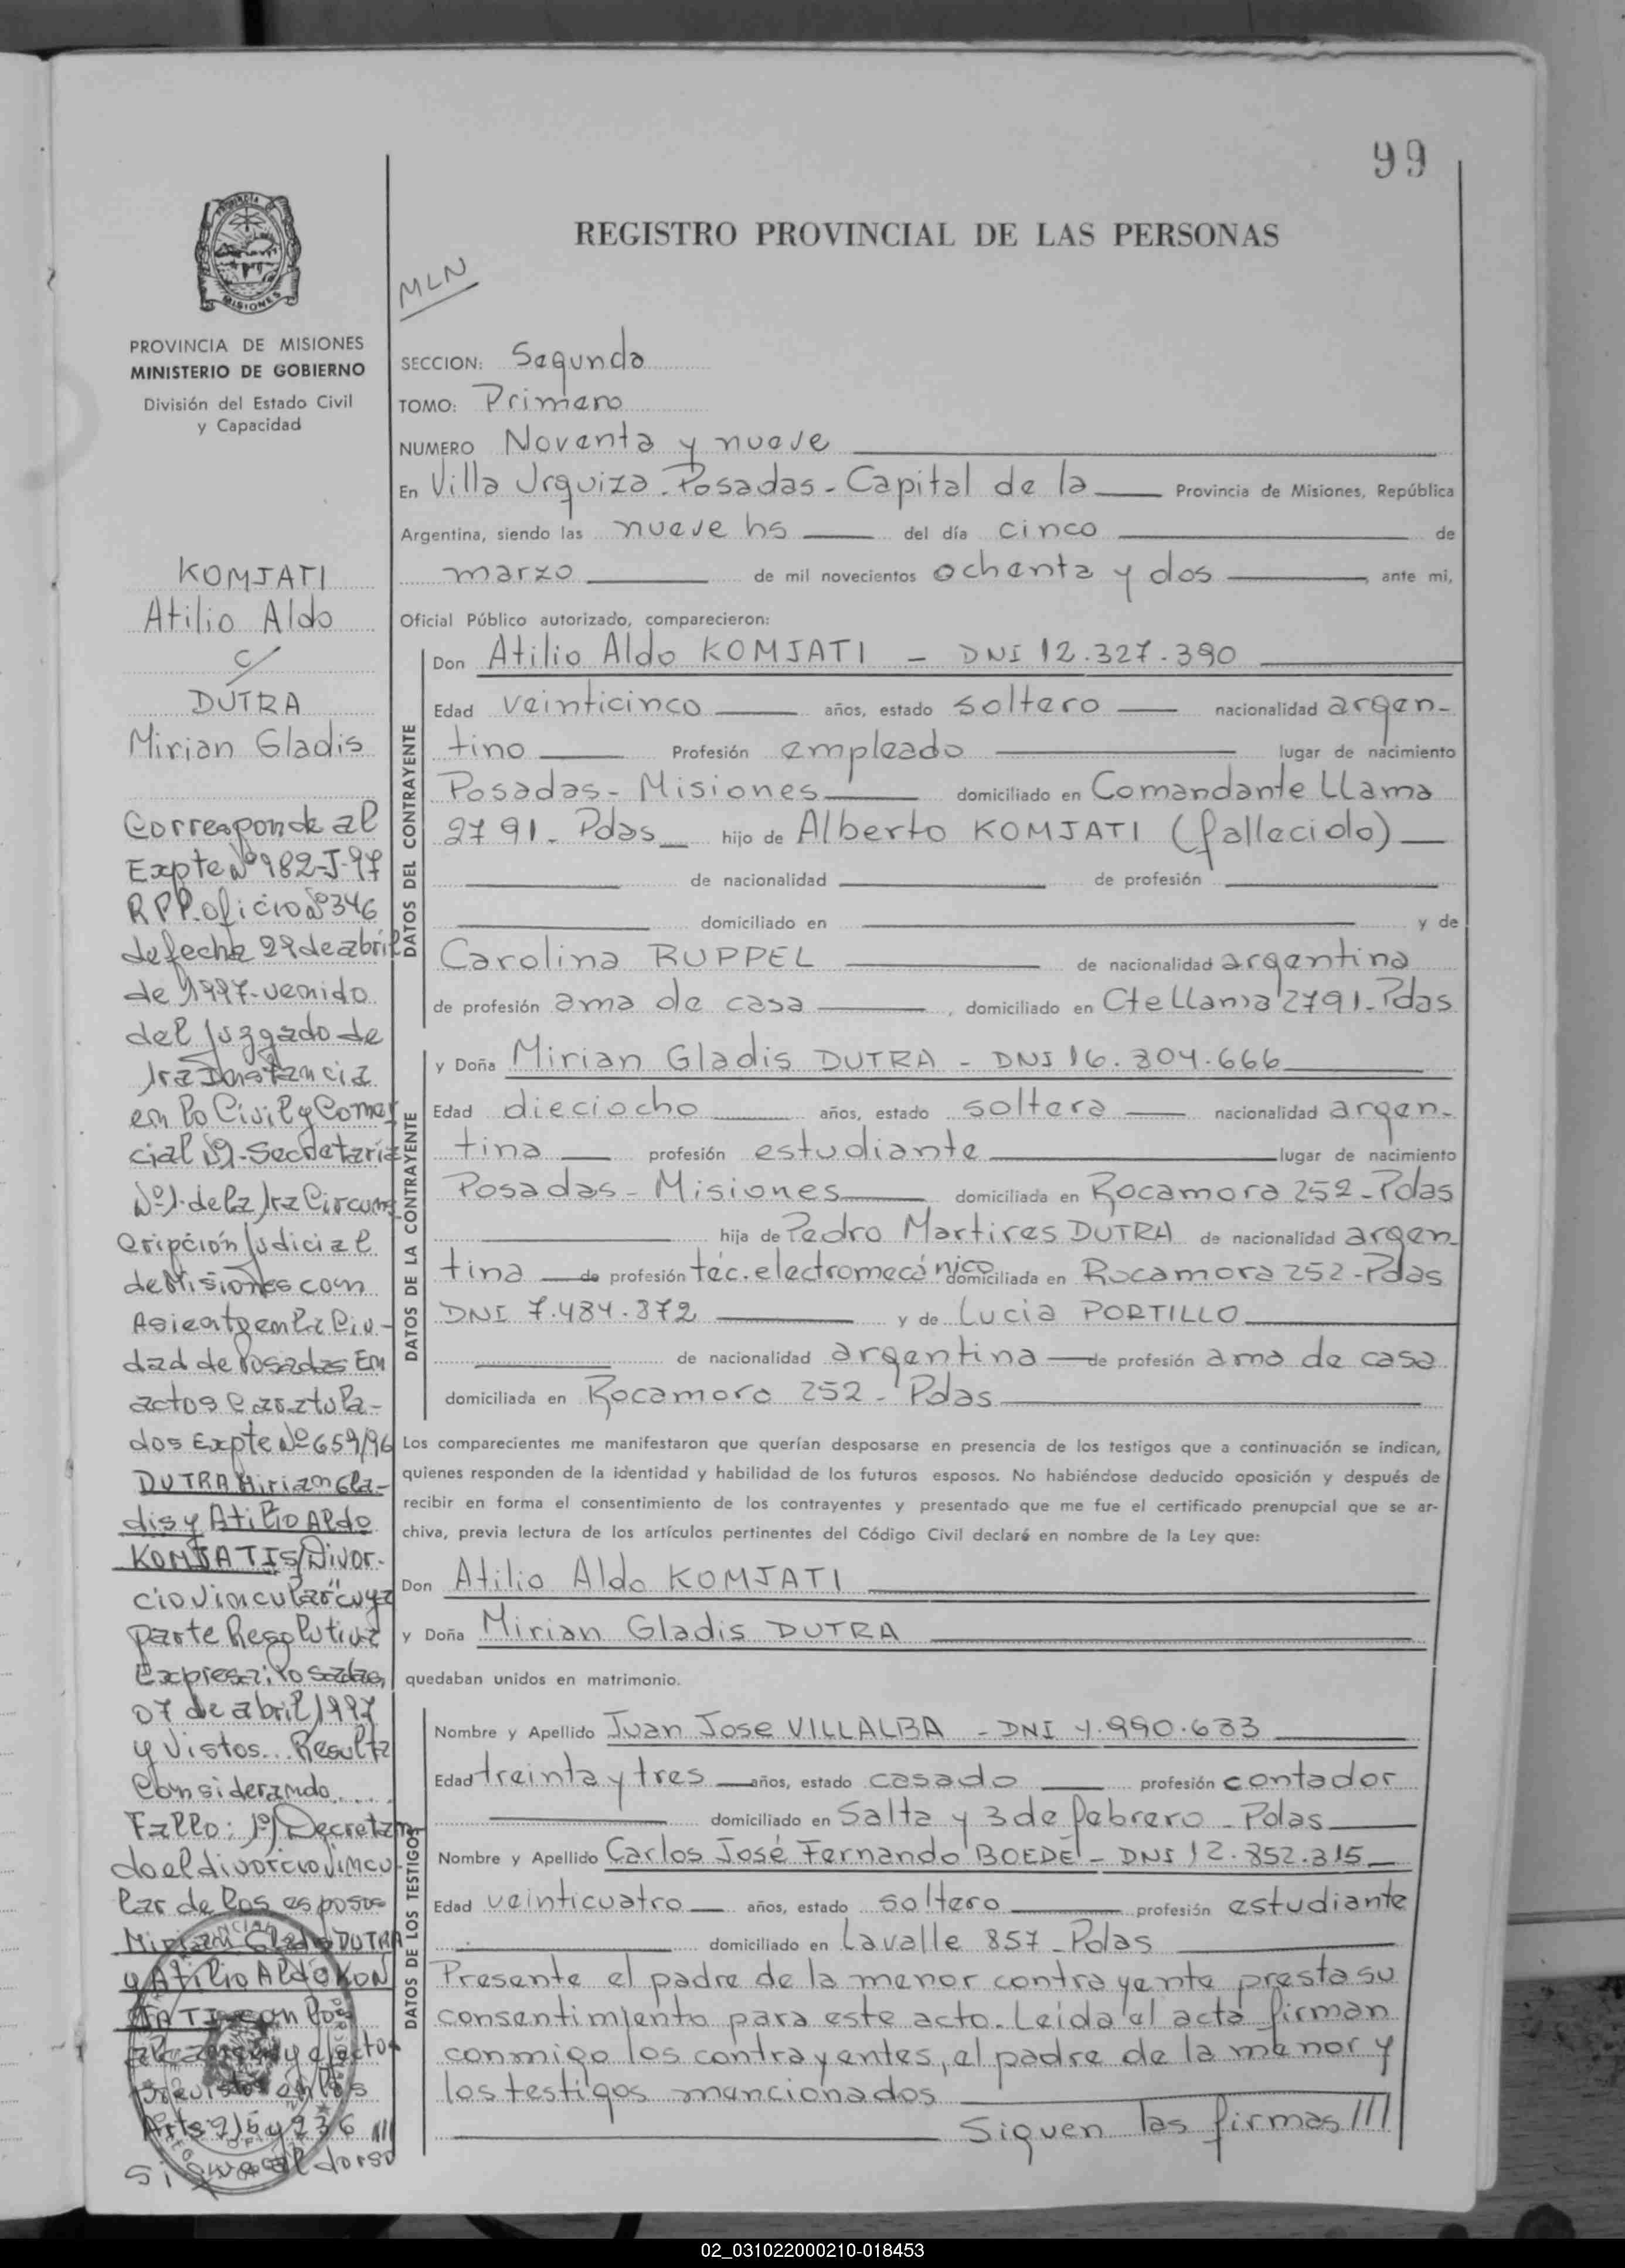 99
REGISTRO PROVINCIAL DE LAS PERSONAS
MLN
MISIONES
PROVINCIA DE MISIONES
MINISTERIO DE GOBIERNO
División del Estado Civil
y Capacidad
KOMJATI
Atilio Aldo
c/
DUTRA
Mirian Gladis
Corresponde al
Expte Nº 982-J-97
RPP. oficio Nº 346
de fecha 29 de abril
de 1997-venido
del juzgado de
1ra Instancia
en lo Civil y Comer
cial Nº1-Secretaría
Nº1-de la 1ra Circuns
cripción Judicial
de Misiones con
Asiento en la Ciu-
dad de Posadas En
actos Caratula-
dos Expte Nº 659/96
DUTRA Mirian Gla-
dis y Atilio Aldo
KOMJATI S/Divor-
cio vincular" cuya
parte Resolutiva
Expresa: Posadas,
07 de abril 1997
y Vistos... Resulta
Considerando.....
Fallo: 1º) Decretan
do el divorcio vincu-
lar de los esposos
Miriam Gladis DUTRA
y Atilio Aldo KOM
JATI con los
alcances y efectos
previstos en los
Arts 215 y 236 ///
Sigue al dorso
SECCION: Segunda
TOMO: Primero
NUMERO Noventa y nueve
En Villa Urquiza. Posadas - Capital de la Provincia de Misiones, República
Argentina, siendo las nueve hs del día cinco de
marzo de mil novecientos ochenta y dos, ante mi,
Oficial Público autorizado, comparecieron:
DATOS DEL CONTRAYENTE
Don Atilio Aldo KOMJATI - DNI 12.327.390
Edad veinticinco años, estado soltero nacionalidad argen-
tino Profesión empleado lugar de nacimiento
Posadas - Misiones domiciliado en Comandante Llama
2791 - Pdas hijo de Alberto KOMJATI (fallecido)
de nacionalidad de profesión
domiciliado en y de
Carolina RUPPEL de nacionalidad argentina
de profesión ama de casa, domiciliado en Cte Llama 2791 - Pdas
DATOS DE LA CONTRAYENTE
y Doña Mirian Gladis DUTRA - DNI 16.304.666
Edad dieciocho años, estado soltera nacionalidad argen-
tina profesión estudiante lugar de nacimiento
Posadas - Misiones domiciliada en Rocamora 252 - Pdas
hija de Pedro Martires DUTRA de nacionalidad argen
tina de profesión téc. electromecánico domiciliada en Rocamora 252 - Pdas
DNI 7.484.872 y de Lucia PORTILLO
de nacionalidad argentina de profesión ama de casa
domiciliada en Rocamora 252 - Pdas
Los comparecientes me manifestaron que querían desposarse en presencia de los testigos que a continuación se indican,
quienes responden de la identidad y habilidad de los futuros esposos. No habiéndose deducido oposición y después de
recibir en forma el consentimiento de los contrayentes y presentado que me fue el certificado prenupcial que se ar-
chiva, previa lectura de los artículos pertinentes del Código Civil declaré en nombre de la Ley que:
Don Atilio Aldo KOMJATI
y Doña Mirian Gladis DUTRA
quedaban unidos en matrimonio.
DATOS DE LOS TESTIGOS
Nombre y Apellido Juan Jose VILLALBA - DNI 4.990.633
Edad treinta y tres años, estado casado profesión contador
domiciliado en Salta y 3 de febrero - Pdas
Nombre y Apellido Carlos José Fernando BOEDE - DNI 12.852.315
Edad veinticuatro años, estado soltero profesión estudiante
domiciliado en Lavalle 857 - Pdas
Presente el padre de la menor contrayente presta su
consentimiento para este acto. Leída el acta firman
conmigo los contrayentes, el padre de la menor y
los testigos mencionados
Siguen las firmas ///
02_031022000210-018453